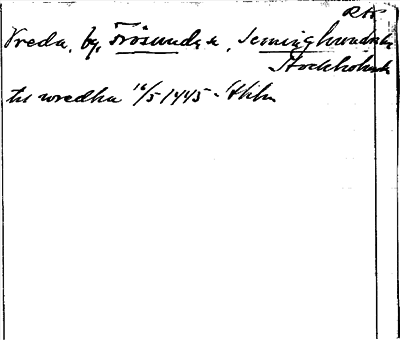 Vreda, by, Frösunda, Seminghundra
Stockholms
til wredha 16/5 1445